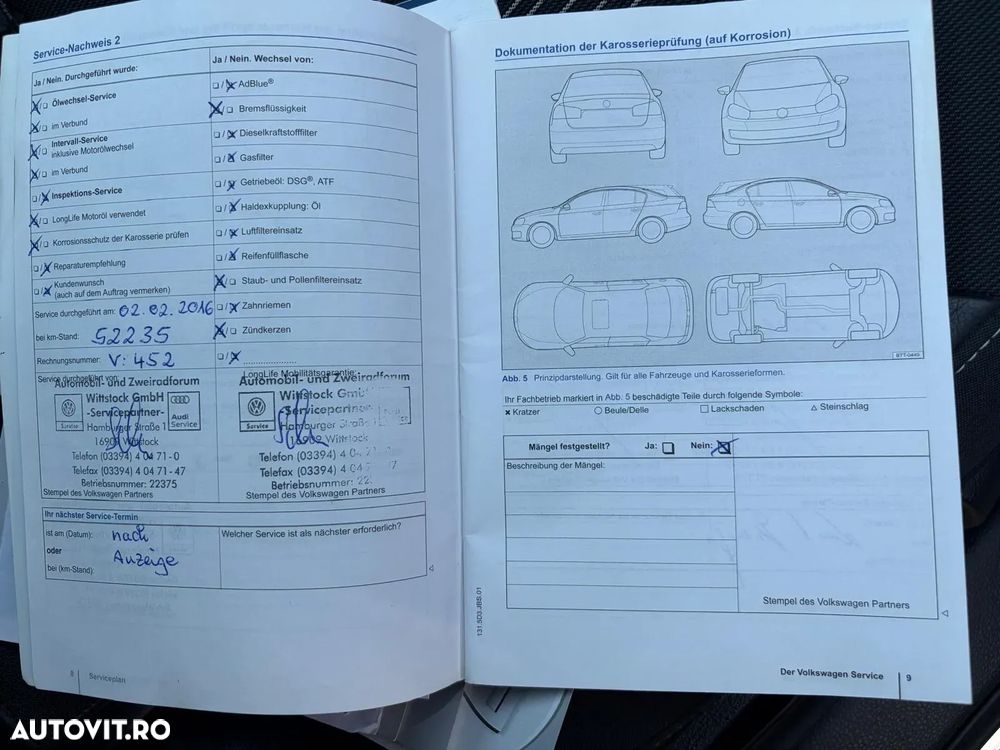 Service-Nachweis 2
Ja / Nein. Durchgeführt wurde:
Ölwechsel-Service
im Verbund
Intervall-Service
inklusive Motorölwechsel
im Verbund
Inspektions-Service
LongLife Motoröl verwendet
Korrosionsschutz der Karosserie prüfen
Reparaturempfehlung
Kundenwunsch
(auch auf dem Auftrag vermerken)
Service durchgeführt am: 02.02.2016
bei km-Stand: 52235
Rechnungsnummer: V: 452
Ja / Nein. Wechsel von:
AdBlue®
Bremsflüssigkeit
Dieselkraftstofffilter
Gasfilter
Getriebeöl: DSG®, ATF
Haldexkupplung: Öl
Luftfiltereinsatz
Reifenfüllflasche
Staub- und Pollenfiltereinsatz
Zahnriemen
Zündkerzen
Service durchgeführt von:
Automobil- und Zweiradforum
Wittstock GmbH
-Servicepartner-
Hamburger Straße 1
16909 Wittstock
Service
Audi
Service
Telefon (03394) 4 04 71-0
Telefax (03394) 4 04 71-47
Betriebsnummer: 22375
Stempel des Volkswagen Partners
LongLife Mobilitätsgarantie:
Automobil- und Zweiradforum
Wittstock GmbH
-Servicepartner-
Hamburger Straße
Wittstock
Service
Telefon (03394) 4 04
Telefax (03394) 4 04
Betriebsnummer: 22
Stempel des Volkswagen Partners
Ihr nächster Service-Termin
ist am (Datum): nach
oder Anzeige
bei (km-Stand):
Welcher Service ist als nächster erforderlich?
8 Serviceplan
Dokumentation der Karosserieprüfung (auf Korrosion)
B7T-0449
Abb. 5 Prinzipdarstellung. Gilt für alle Fahrzeuge und Karosserieformen.
Ihr Fachbetrieb markiert in Abb. 5 beschädigte Teile durch folgende Symbole:
Kratzer Beule/Delle Lackschaden Steinschlag
Mängel festgestellt? Ja: Nein:
Beschreibung der Mängel:
Stempel des Volkswagen Partners
131.5D3.JBS.01
Der Volkswagen Service 9
AUTOVIT.RO